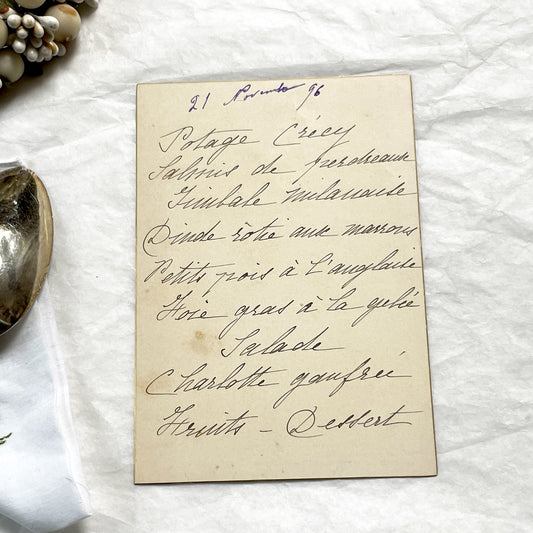 21 Novembre 96
Potage Crécy
Salmis de perdreaux
Timbale milanaise
Dinde rôtie aux marrons
Petits pois à l'anglaise
Foie gras à la gelée
Salade
Charlotte gaufrée
Fruits - Dessert